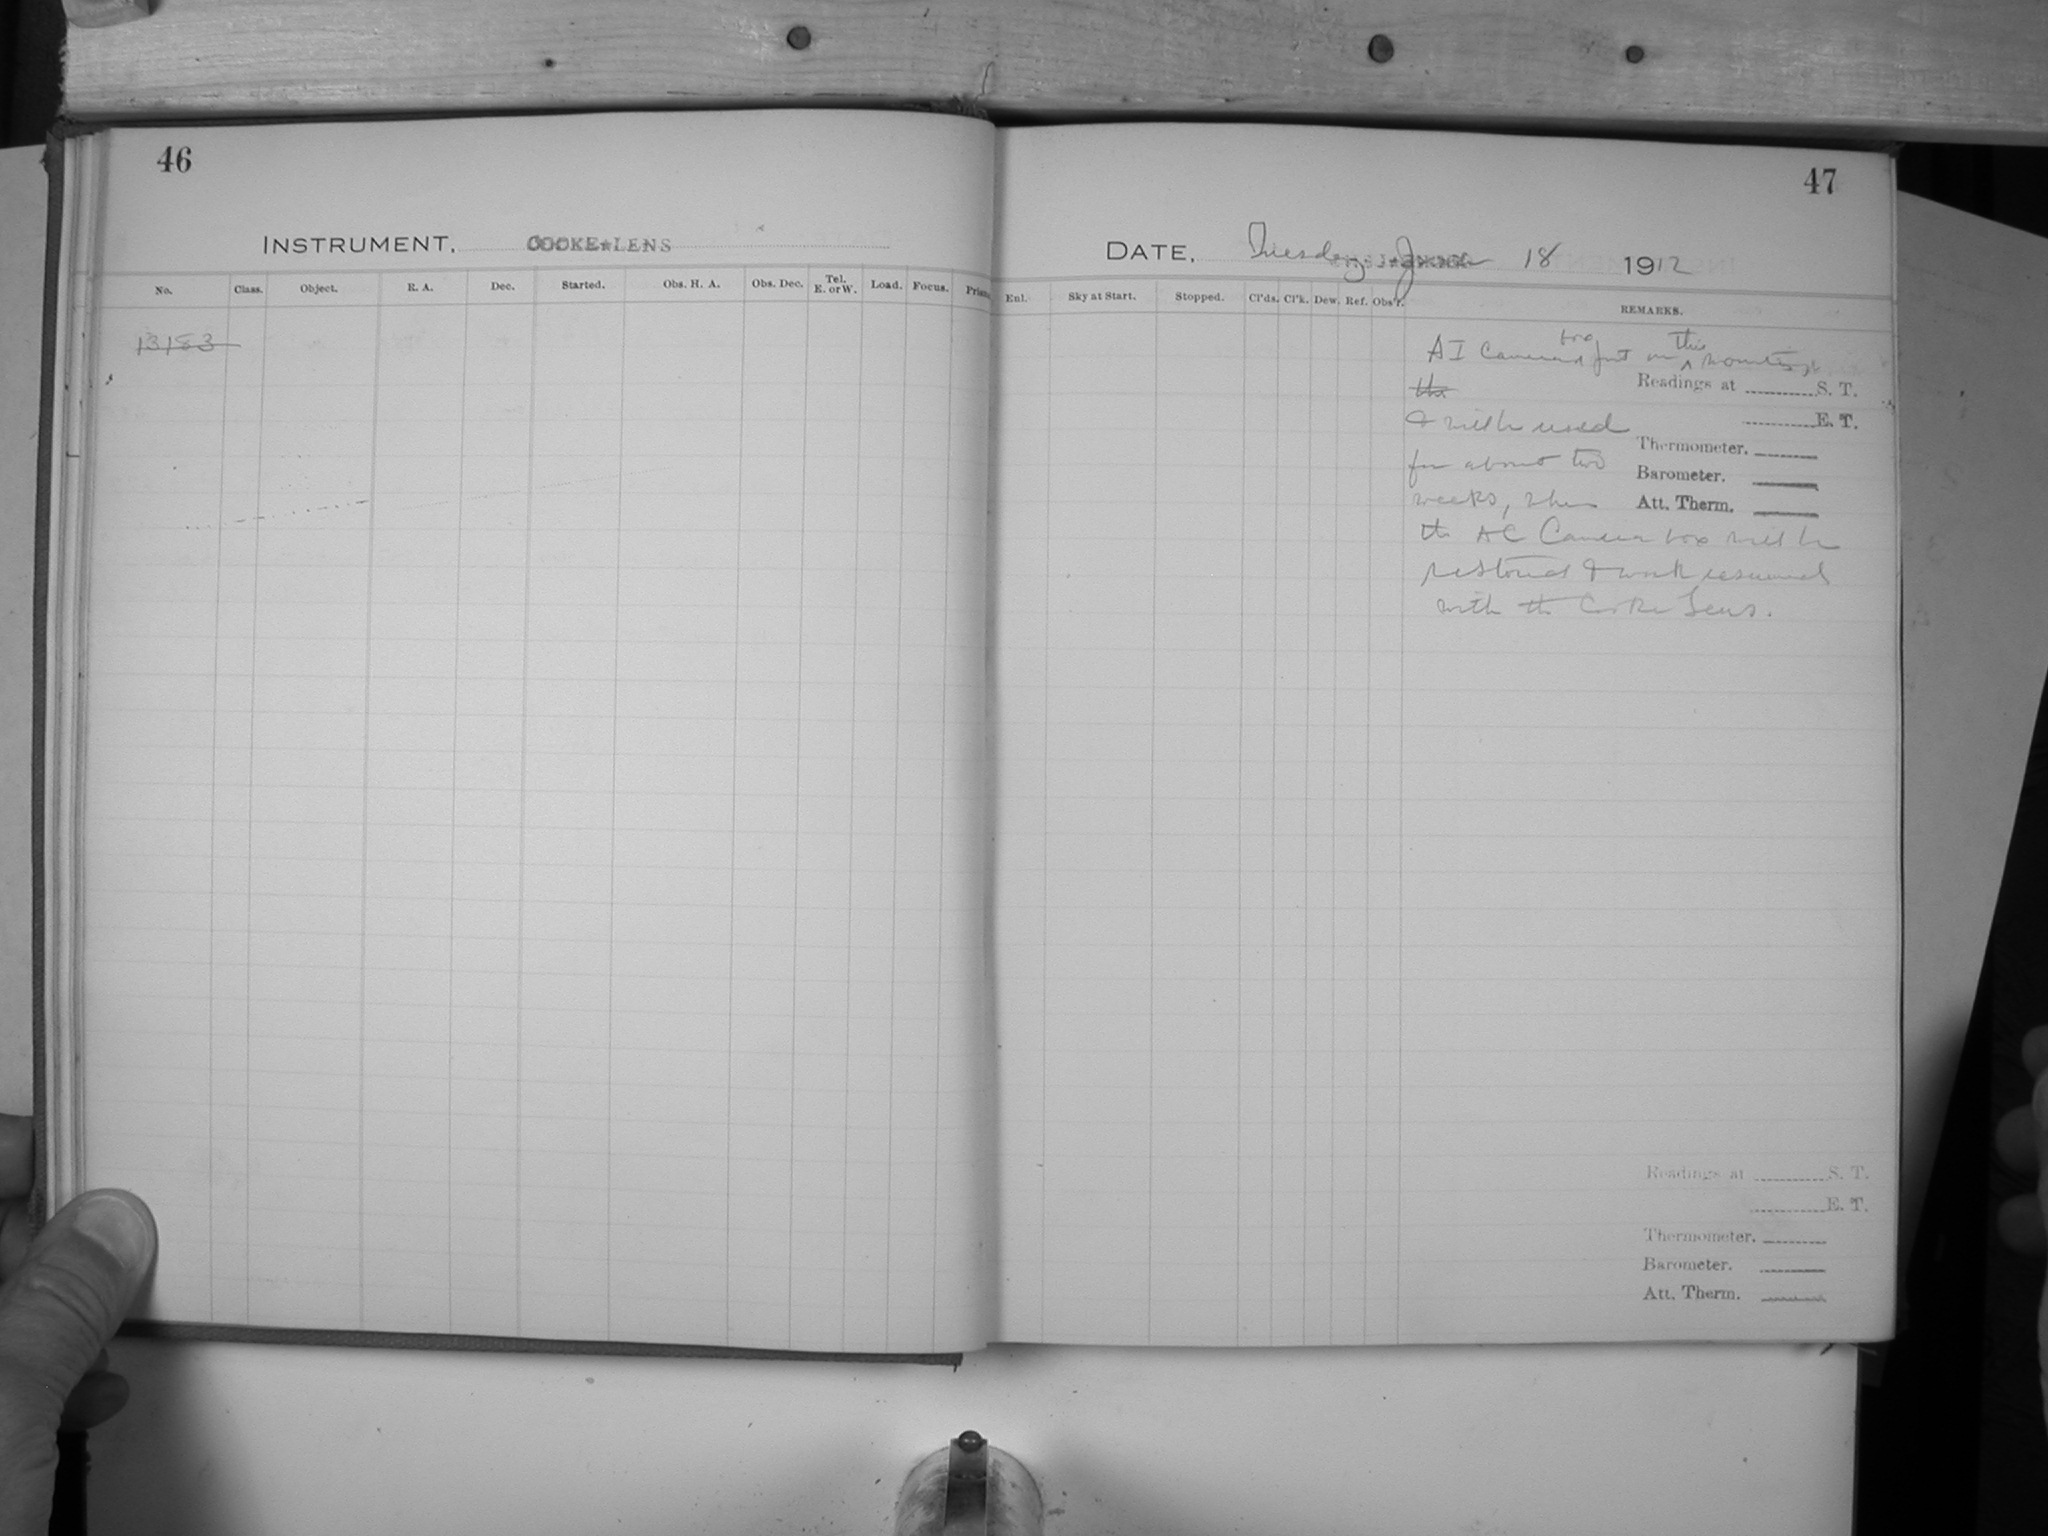 46
INSTRUMENT, COOKE★LENS
No. Class. Object. R. A. Dec. Started. Obs. H. A. Obs. Dec. Tel. E. or W. Load. Focus. Prism
13183
47
DATE, Tuesday June 18 1912
Enl. Sky at Start. Stopped. Cl'ds. Cl'k. Dew. Ref. Obs'r. REMARKS.
AI Camera box put on this mounting
the
& will be used
for about two
weeks, when
the AC Camera box will be
restored & work resumed
with the Cooke Lens.
Readings at ............S. T.
............E. T.
Thermometer.
Barometer.
Att. Therm.
Readings at ............S. T.
............E. T.
Thermometer.
Barometer.
Att. Therm.